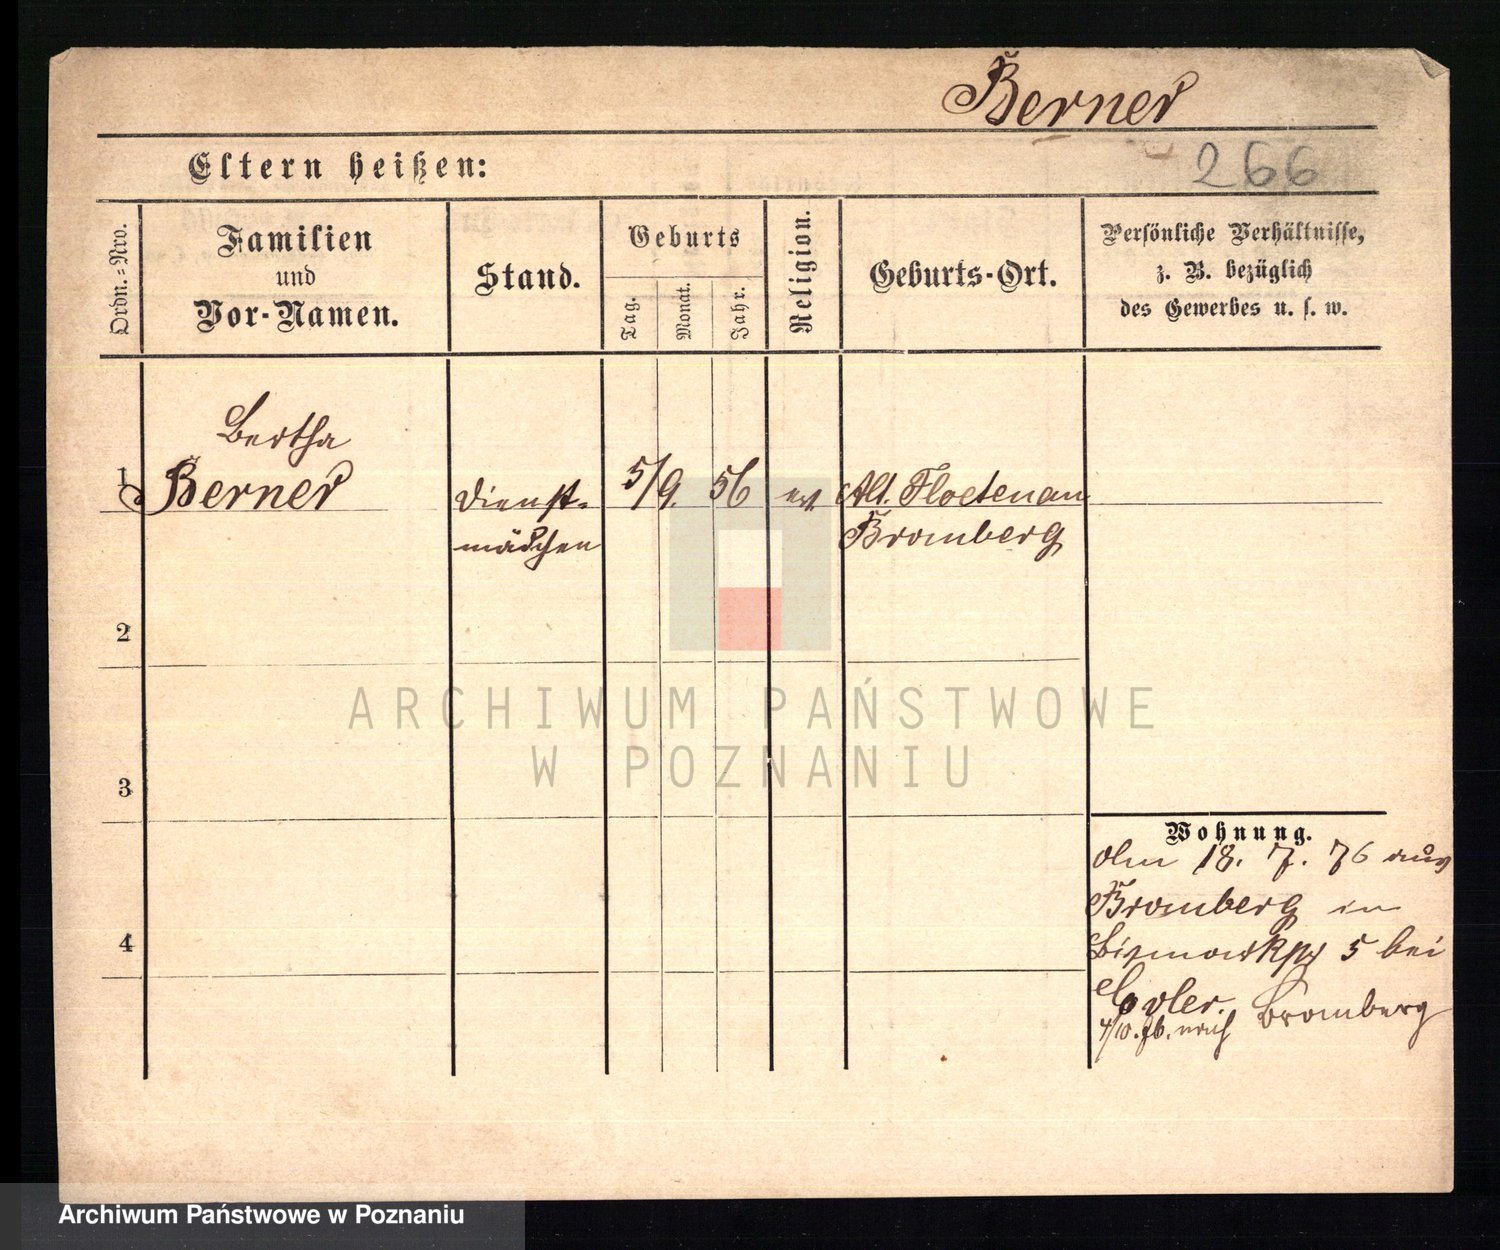 Berner
Eltern heißen:
266
Ordn.=Nro.
Familien
und
Vor-Namen.
Stand.
Geburts
Tag.
Monat.
Jahr.
Religion.
Geburts-Ort.
Persönliche Verhältnisse,
z. B. bezüglich
des Gewerbes u. s. w.
1
Bertha
Berner
Dienst-
mädchen
5/9. 56
ev.
Alt. Floetenau
Bromberg
2
3
4
Wohnung.
18. 7. 76 aus
Bromberg in
5 bei
4/10. 76. nach Bromberg
ARCHIWUM PAŃSTWOWE
W POZNANIU
Archiwum Państwowe w Poznaniu